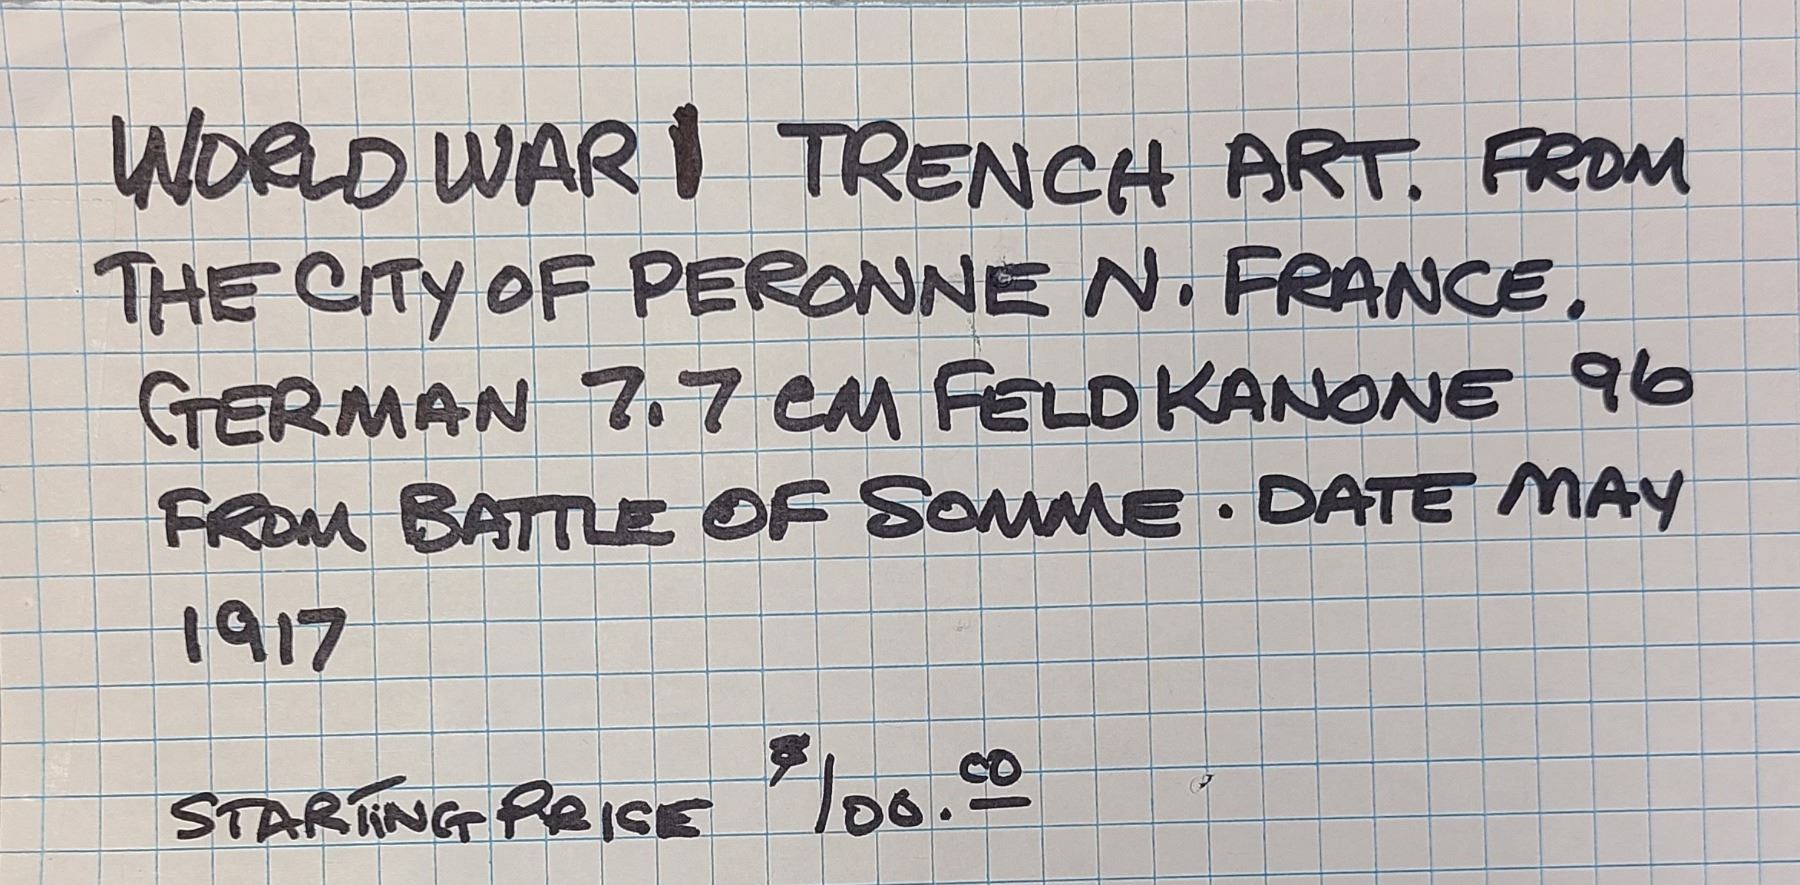 WORLD WAR 1 TRENCH ART. FROM
THE CITY OF PERONNE N. FRANCE.
GERMAN 7.7 CM FELDKANONE 96
FROM BATTLE OF SOMME. DATE MAY
1917
STARTING PRICE $100.00